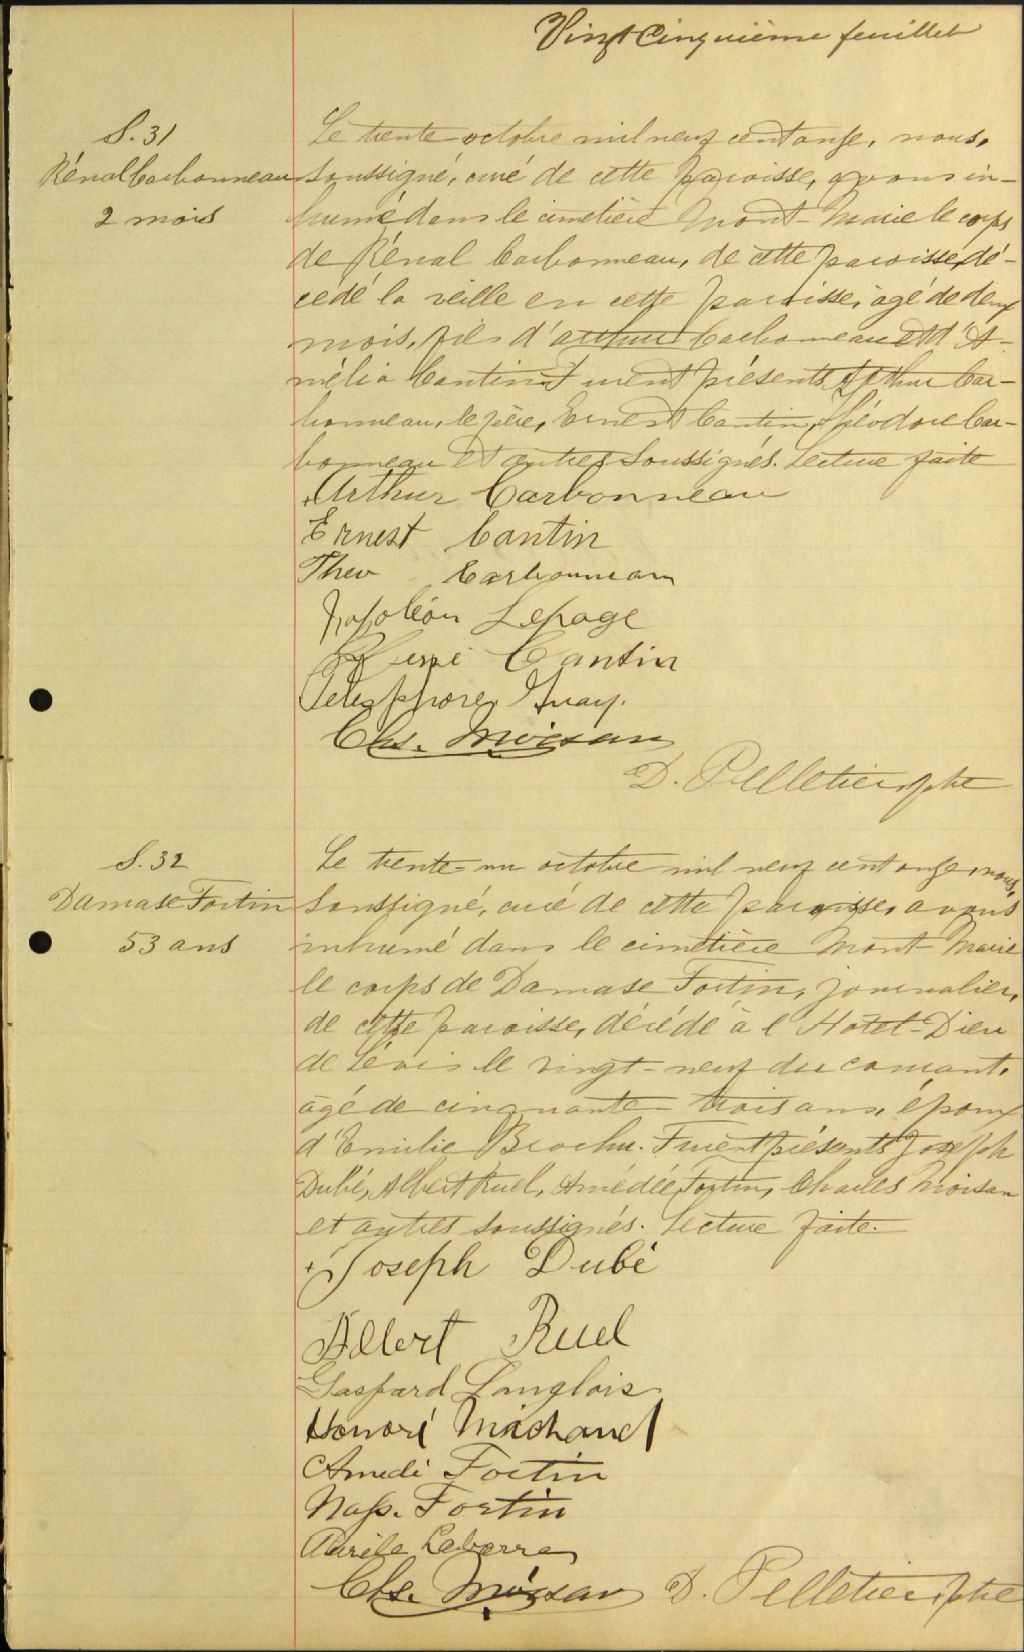 Vingt Cinquième feuillet
S. 31
Rénal Carbonneau
2 mois
Le trente octobre mil neuf cent onze, nous,
soussigné, curé de cette paroisse, avons in-
humé dans le cimetière Mont-Marie le corps
de Rénal Carbonneau, de cette paroisse, dé-
cédé la veille en cette paroisse, âgé de deux
mois, fils d'Arthur Carbonneau et d'A-
mélia Cantin. Furent présents Arthur Car-
bonneau, le père, Ernest Cantin, Théodore Car-
bonneau et autres soussignés. Lecture faite
+ Arthur Carbonneau
Ernest Cantin
Theo Carbonneau
Napoléon Lepage
Cantin
Télesphore Guay.
Chs. Moisan
D. Pelletier, ptre
S. 32
Damase Fortin
53 ans
Le trente-un octobre mil neuf cent onze, nous,
soussigné, curé de cette paroisse, avons
inhumé dans le cimetière Mont-Marie
le corps de Damase Fortin, journalier,
de cette paroisse, décédé à l'Hotel-Dieu
de Lévis le vingt-neuf du courant,
âgé de cinquante-trois ans, époux
d'Emilie Brochu. Furent présents Joseph
Dubé, Albert Ruel, Amédée Fortin, Charles Moisan
et autres soussignés. Lecture faite.
+ Joseph Dubé
Albert Ruel
Gaspard Langlois
Honoré Michaud
Amedé Fortin
Nap. Fortin
Chs. Moisan D. Pelletier, ptre